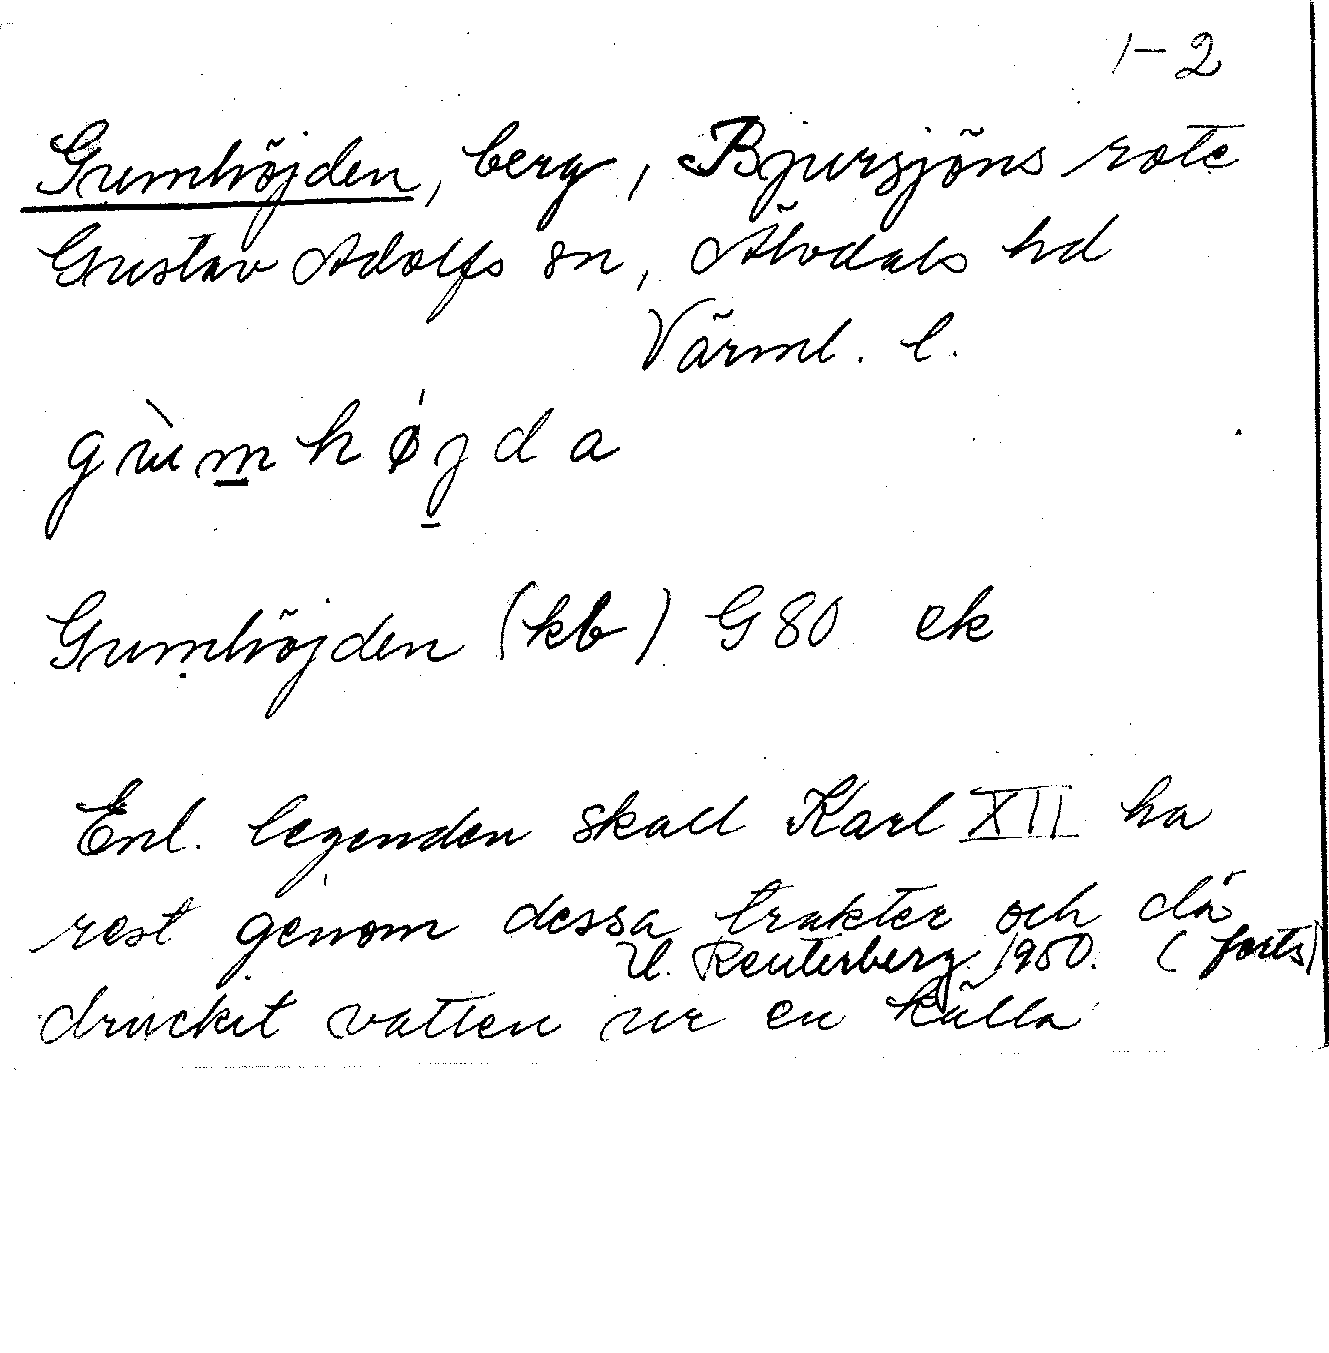 1-2
Gumhöjden, berg, Bjursjöns rote
Gustav Adolfs sn, Älvdals hd
Värml. l.
gùmhǿjda
Gumhöjden (kb) G80 ek
Enl. legenden skall Karl XII ha
rest genom dessa trakter och då
U. Reuterberg. 1950. (forts)
druckit vatten ur en källa